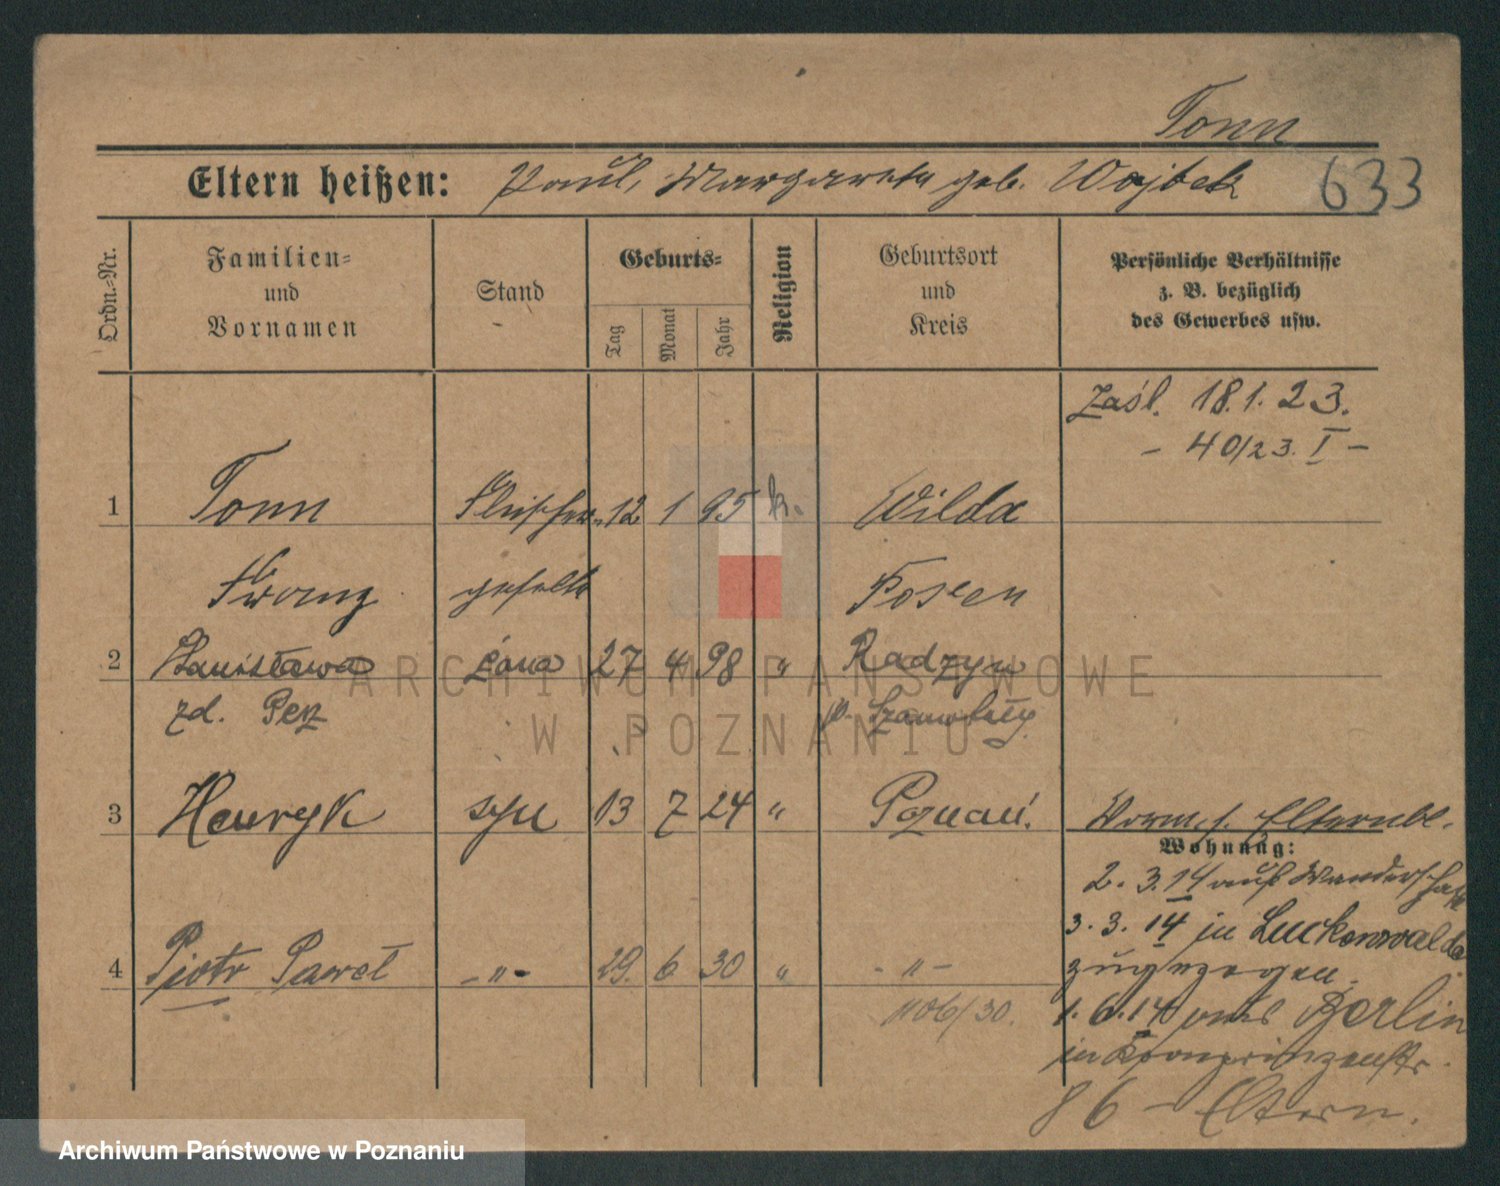 Tonn
Eltern heißen: Paul, Margareta geb. Wojtek 633
Ordn.-Nr.
Familien-
und
Vornamen
Stand
Geburts-
Tag
Monat
Jahr
Religion
Geburtsort
und
Kreis
Persönliche Verhältnisse
z. B. bezüglich
des Gewerbes usw.
Zaśl. 18.1.23.
- 40/23. I -
1 Tonn Fleischer 12 1 95 k. Wilda
Franz geselle Posen
2 Stanisława żona 27 4 98 " Radzyn
zd. Perz p. Szamotuły
3 Henryk syn 13 7 24 " Poznań.
Elternbl.
Wohnung:
2. 3. 14 auf Wanderschaft
3. 3. 14 in Luckenwalde
zugezogen.
4 Piotr Paweł -"- 29. 6 30 " -"-
1106/30.
1. 6. 14 nach Berlin
in Kronprinzenstr.
86 - Eltern.
ARCHIWUM PAŃSTWOWE
W POZNANIU
Archiwum Państwowe w Poznaniu